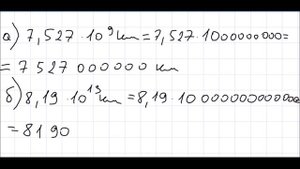 а) 7,527 · 10⁹ км = 7,527 · 1000000000 =
= 7 527 000000 км
б) 8,19 · 10¹³ км = 8,19 · 10 000000000000
= 8190